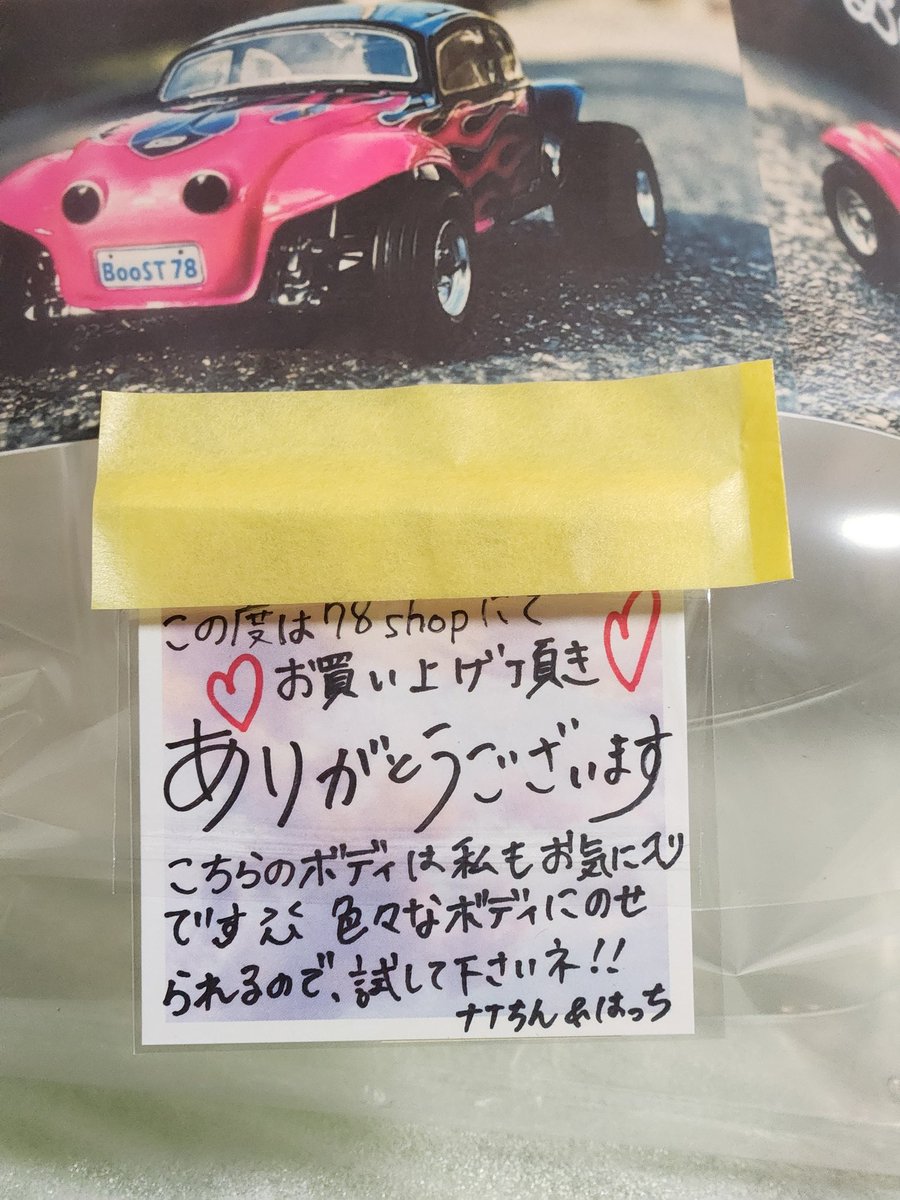 BooST 78
この度は78shopにて
お買い上げ頂き
ありがとうございます
こちらのボディは私もお気に入り
です 色々なボディにのせ
られるので、試して下さいネ!!
ナナちん&はっち